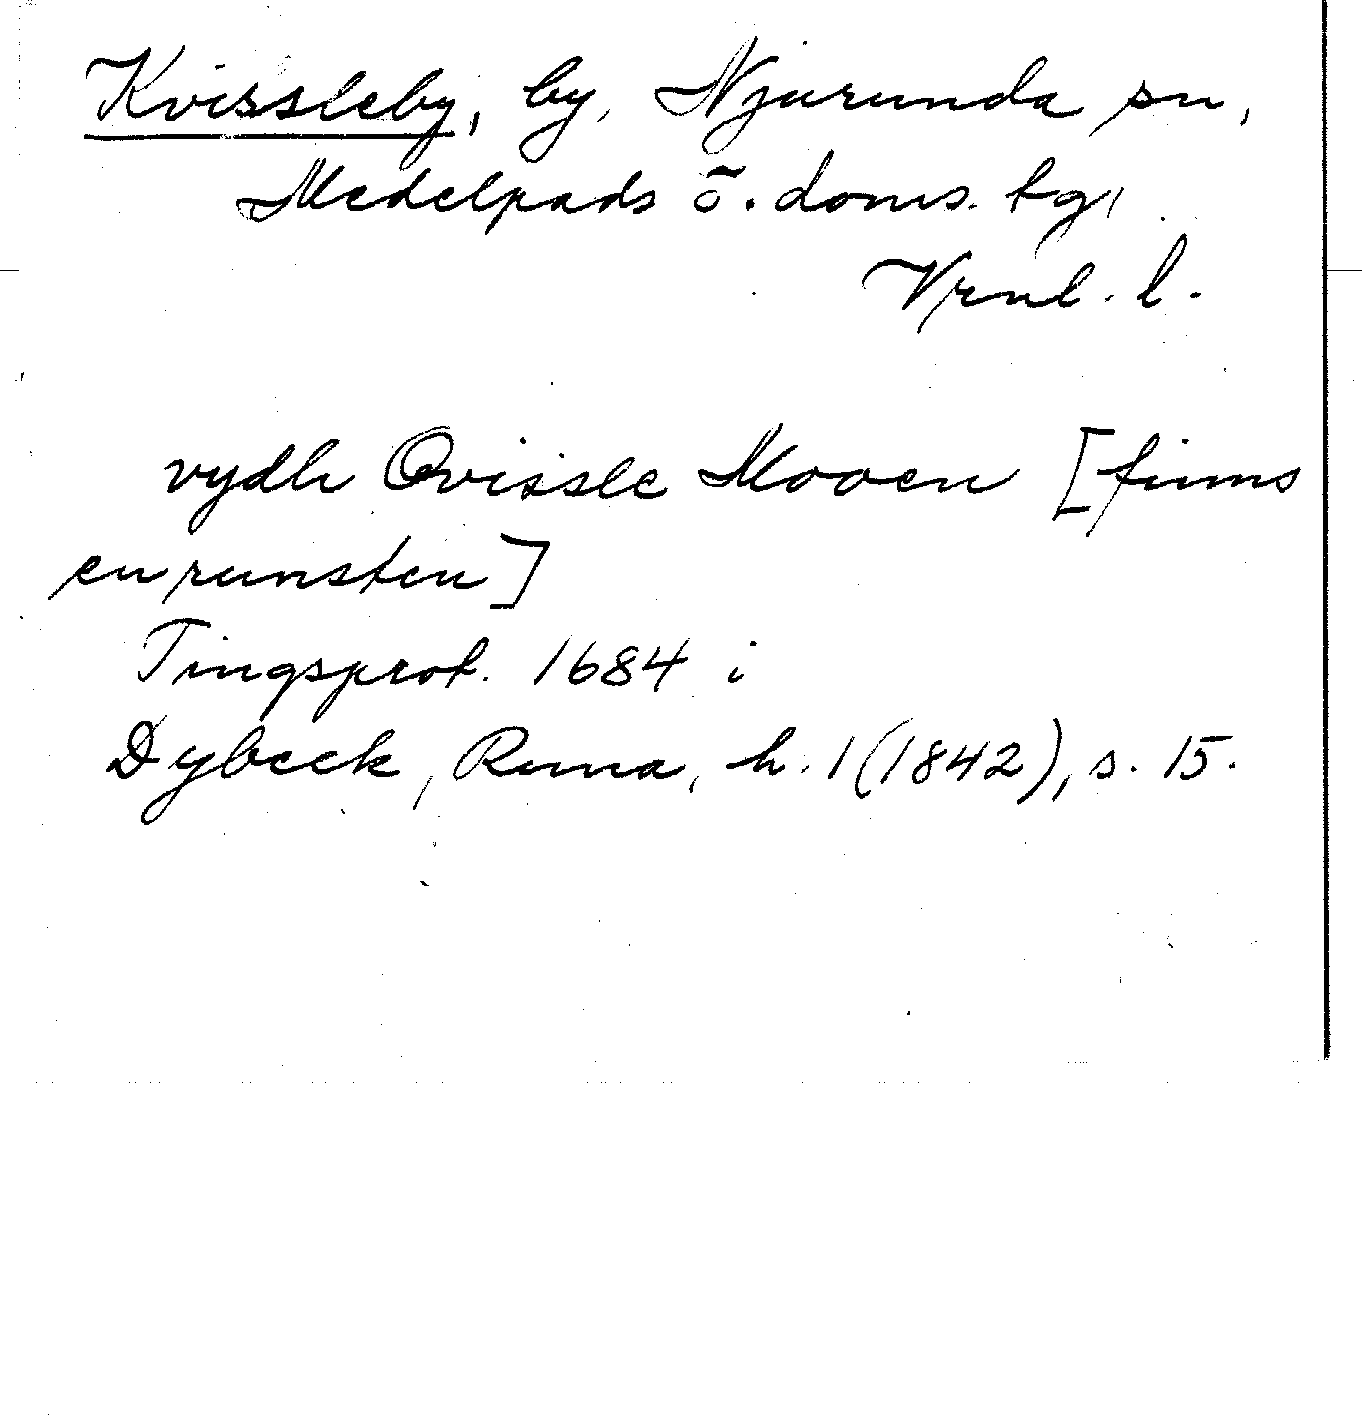 Kvissleby, by, Njurunda sn,
Medelpads ö. doms. tg,
Vrnl. l.
vydh Qvissle Mooen [finns
en runsten]
Tingsprot. 1684 i
Dybeck, Runa, h. 1 (1842), s. 15.